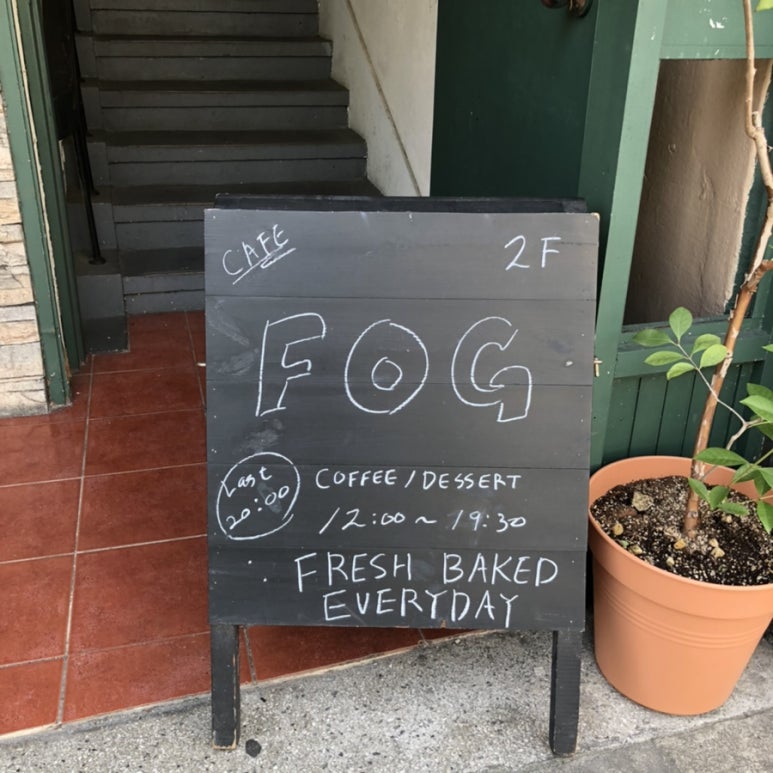 CAFE
2F
FOG
Last
20:00
COFFEE / DESSERT
12:00～19:30
FRESH BAKED
EVERYDAY